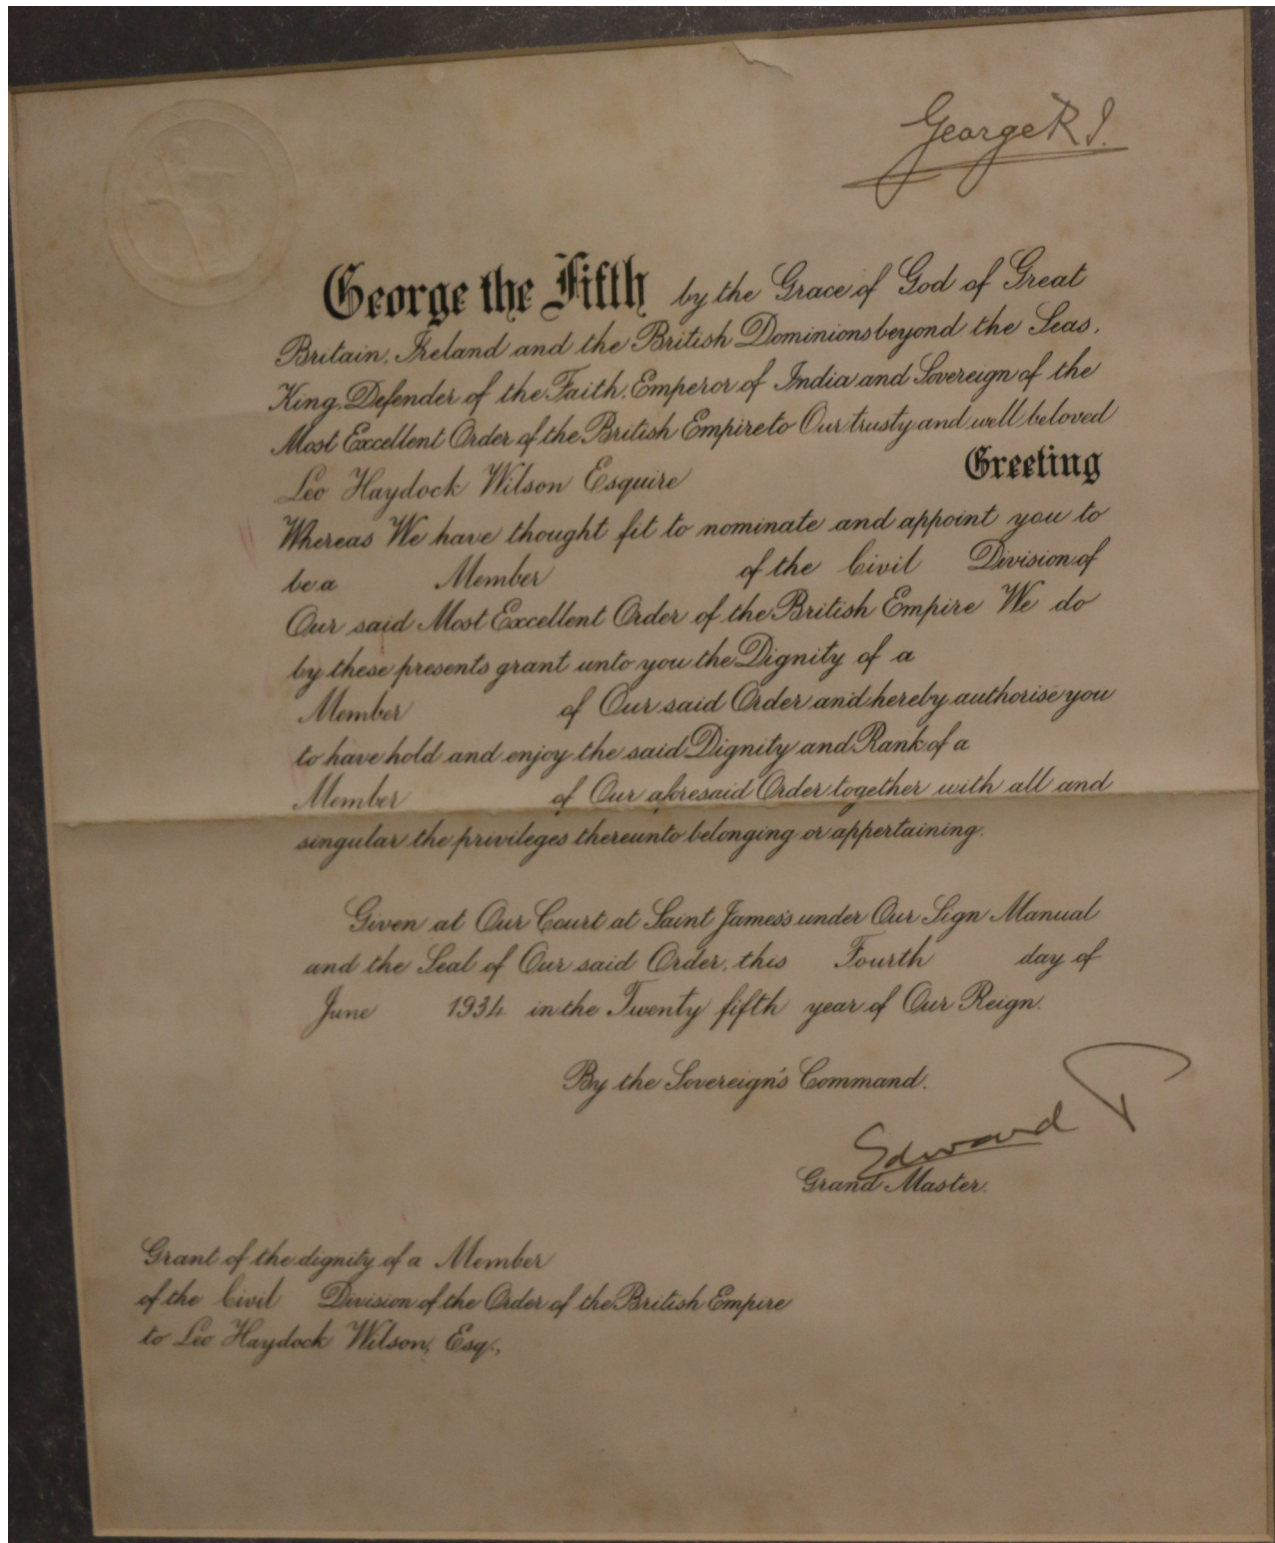 George R.I.
George the Fifth by the Grace of God of Great
Britain, Ireland and the British Dominions beyond the Seas,
King, Defender of the Faith, Emperor of India and Sovereign of the
Most Excellent Order of the British Empire to Our trusty and well beloved
Leo Haydock Wilson Esquire Greeting
Whereas We have thought fit to nominate and appoint you to
be a Member of the Civil Division of
Our said Most Excellent Order of the British Empire We do
by these presents grant unto you the Dignity of a
Member of Our said Order and hereby authorise you
to have hold and enjoy the said Dignity and Rank of a
Member of Our aforesaid Order together with all and
singular the privileges thereunto belonging or appertaining.
Given at Our Court at Saint James's under Our Sign Manual
and the Seal of Our said Order, this Fourth day of
June 1934 in the Twenty fifth year of Our Reign.
By the Sovereign's Command.
Edward P
Grand Master.
Grant of the dignity of a Member
of the Civil Division of the Order of the British Empire
to Leo Haydock Wilson, Esq.,